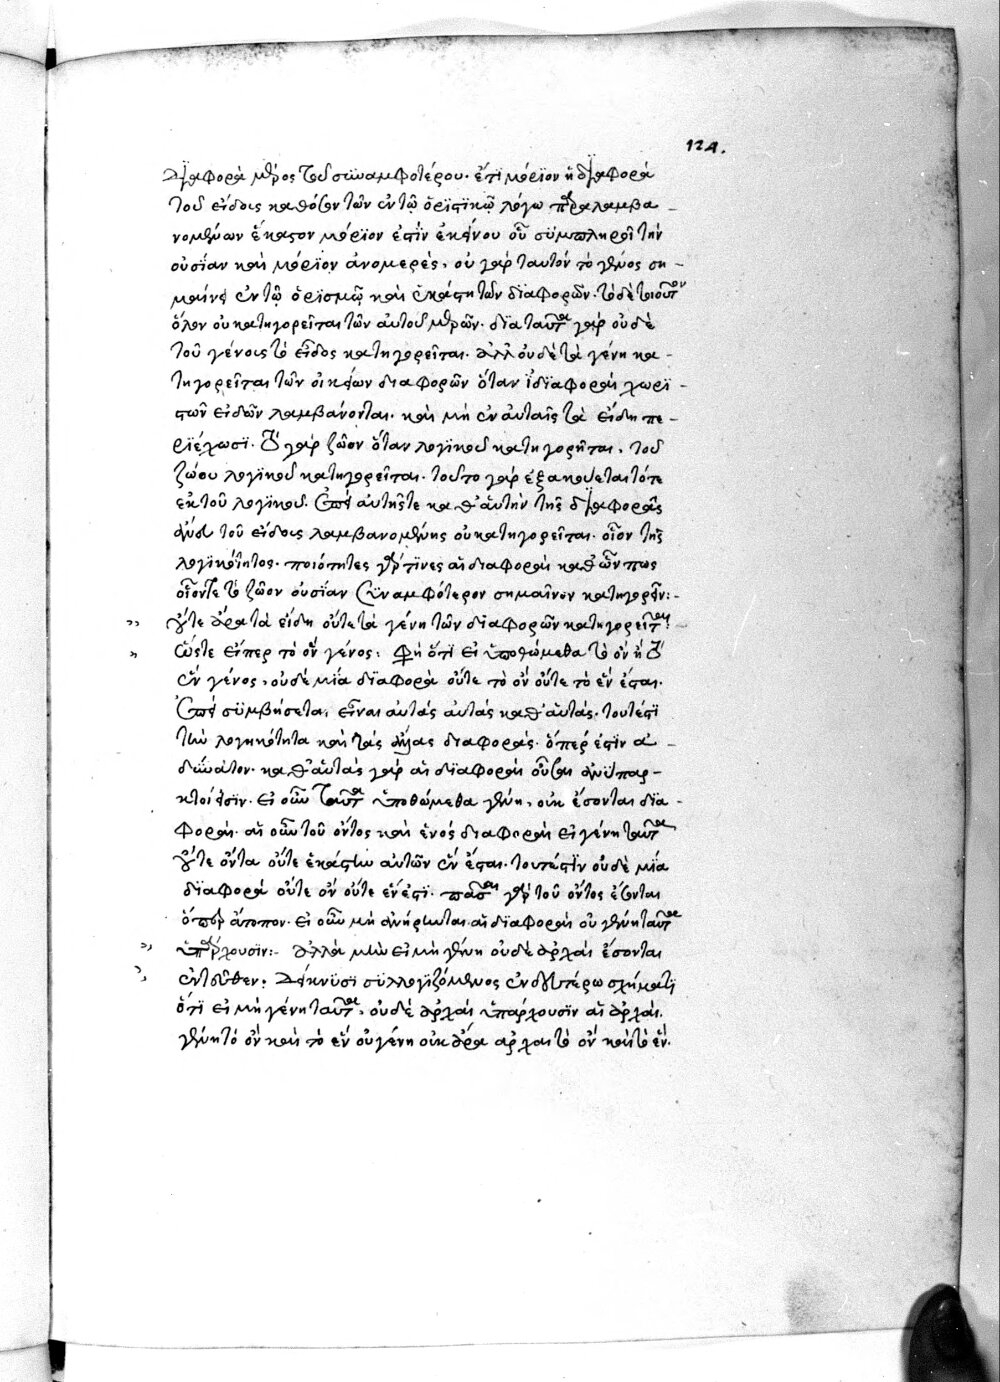 124.
διαφορὰ μέρος τοῦ συναμφοτέρου. ἔτι μόριον ἡ διαφορὰ
τοῦ εἴδους καθόσον τῶν ἐν τῷ ὁριστικῷ λόγω παραλαμβα-
νομένων ἕκαστον μόριον ἐστὶν ἐκείνου οὗ συμπληροῖ τὴν
οὐσίαν καὶ μόριον ἀνομερές, οὐ γὰρ ταυτόν τὸ γένος ση-
μαίνει ἐν τῷ ὁρισμῷ καὶ ἑκάστη τῶν διαφορῶν. τὸ δὲ τοιοῦτον
ὅλον οὐ κατηγορεῖται τῶν αὐτοῦ μερῶν. διὰ ταῦτα γὰρ οὐδὲ
τοῦ γένους τὸ εἶδος κατηγορεῖται. ἀλλ' οὐδὲ τὰ γένη κα-
τηγορεῖται τῶν οἰκείων διαφορῶν ὅταν αἱ διαφοραὶ χωρὶ-
ς τῶν εἰδῶν λαμβάνονται. καὶ μὴ ἐν αὐταῖς τὰ εἴδη πε-
ριέχωσι. τὸ γὰρ ζῶον ὅταν λογικοῦ κατηγορῆται, τοῦ
ζώου λογικοῦ κατηγορεῖται. τοῦτο γὰρ ἐξακούεται τότε
ἐκ τοῦ λογικοῦ. ἐπεὶ αὐτῆς τε καθ' αὑτὴν τῆς διαφορᾶς
ἄνευ τοῦ εἴδους λαμβανομένης οὐ κατηγορεῖται. οἷον τῆς
λογικότητος. ποιότητες γάρ τινες αἱ διαφοραὶ καθ' ὧν πως
οἷόντε τὸ ζῶον οὐσίαν συναμφότερον σημαῖνον κατηγορεῖν:-
οὔτε ἄρα τὰ εἴδη οὔτε τὰ γένη τῶν διαφορῶν κατηγορεῖται
ὥστε εἴπερ τὸ ὂν γένος: φησὶ ὅτι εἰ ὑποθώμεθα τὸ ὂν ἢ τὸ
ἓν γένος, οὐδὲ μία διαφορὰ οὔτε τὸ ὂν οὔτε τὸ ἓν ἔσται.
ἐπεὶ συμβήσεται, εἶναι αὐτάς αὐτάς καθ' αὑτάς. τουτέστι
τὴν λογηκότητα καὶ τὰς ἄλλας διαφοράς. ὅπερ ἐστὶν ἀ-
δύνατον. καθ' αὑτὰς γὰρ αἱ διαφοραὶ οὖσαι ἀνύπαρ-
κτοί εἰσιν. εἰ οὖν ταῦτα ὑποθώμεθα γένη, οὐκ ἔσονται δια-
φοραί. αἱ οὖν τοῦ ὄντος καὶ ἑνός διαφοραὶ εἰ γένη ταῦτα
οὔτε ὄντα οὔτε ἑκάστη αὐτῶν ἓν ἔσται. τουτέστιν οὐδὲ μία
διαφορά οὔτε ὂν οὔτε ἕν ἐστι. πᾶσαι γὰρ τοῦ ὄντος ἔσονται
ὅπερ ἄτοπον. εἰ οὖν μὴ ἀνήρωνται αἱ διαφοραὶ οὐ γένη ταῦτα
ὑπάρχουσιν:- ἀλλὰ μὴν εἰ μὴ γένη οὐδὲ ἀρχαὶ ἔσονται
ἐντεῦθεν: δείκνυσι συλλογιζόμενος ἐν δευτέρω σχήματι
ὅτι εἰ μὴ γένη ταῦτα, οὐδὲ ἀρχαί ὑπάρχουσιν αἱ ἀρχαί,
γένη τὸ ὂν καὶ τὸ ἓν οὐ γένη οὐκ ἄρα ἀρχαὶ τὸ ὂν καὶ τὸ ἕν.